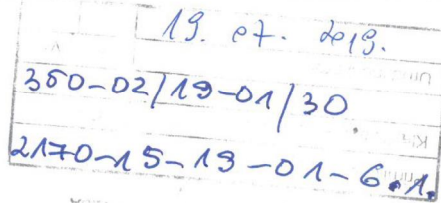 19. 07. 2019.
350-02/19-01/30
2170-15-19-01-6.1.